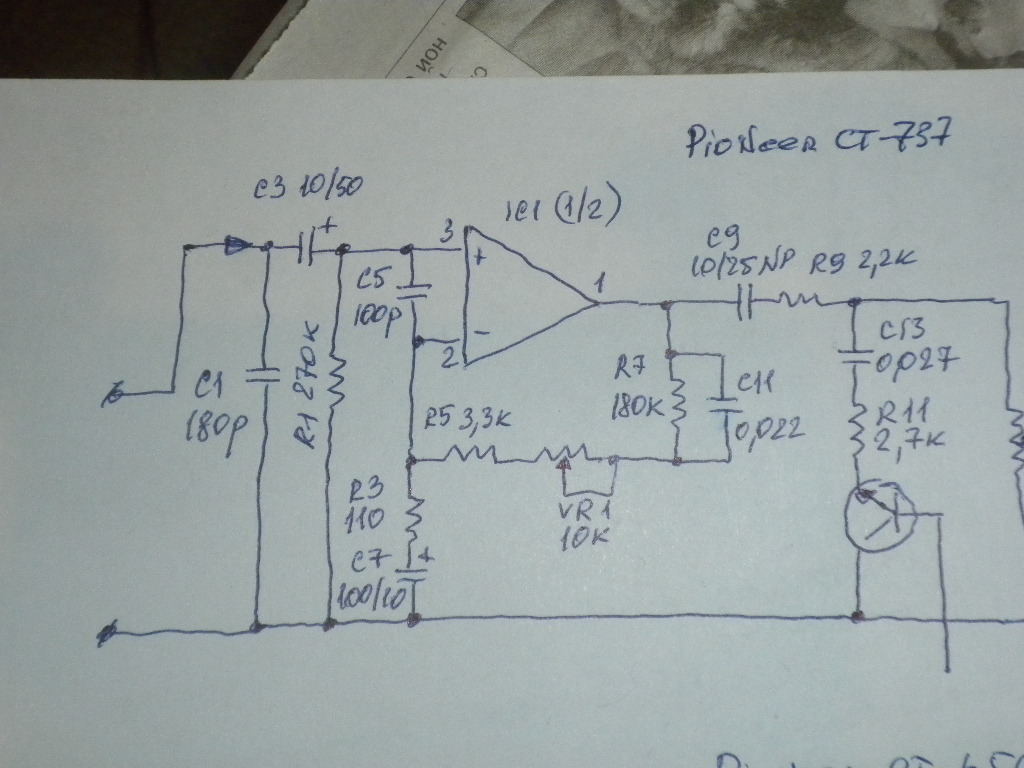 ной
с
Pioneer CT-737
C3 10/50
+
IC1 (1/2)
3
+
C5
100p
1
C9
10/25 NP
R9 2,2K
-
2
C1
180p
R1 270K
R5 3,3K
R7
180K
C11
0,022
C13
0,027
R11
2,7K
R3
110
VR1
10K
C7
+
100/10